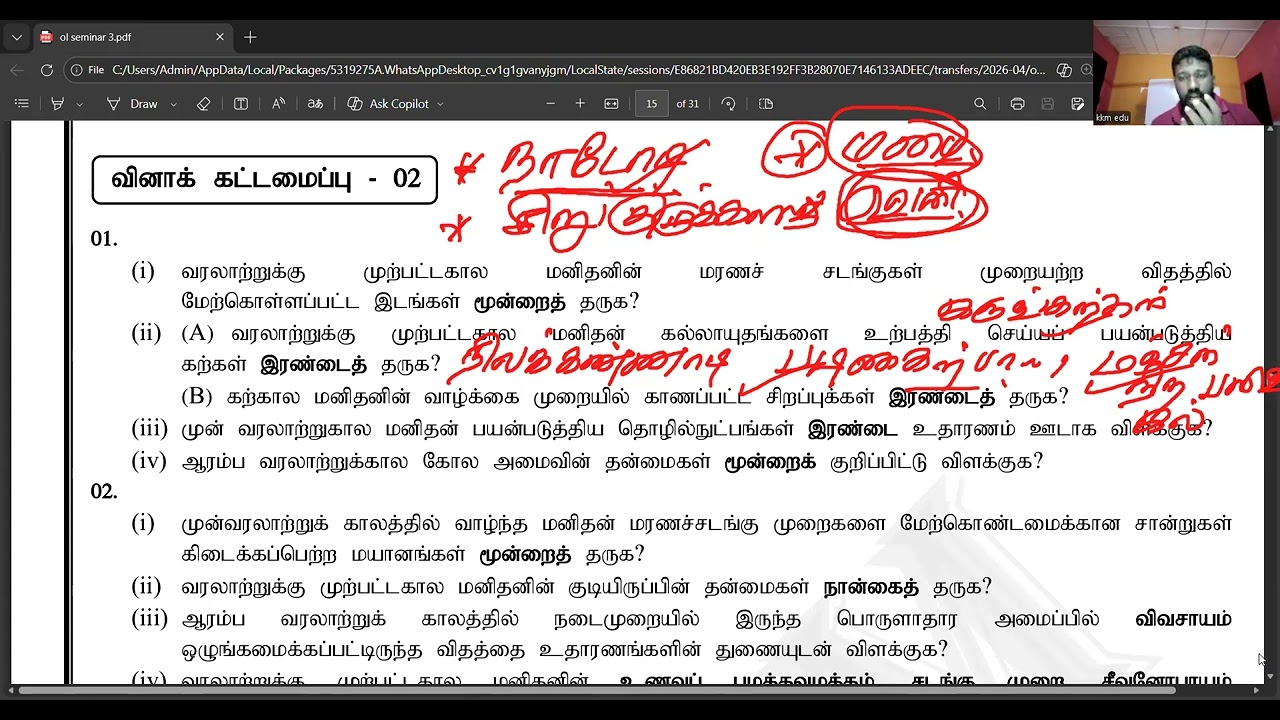 ol seminar 3.pdf
File C:/Users/Admin/AppData/Local/Packages/5319275A.WhatsAppDesktop_cv1g1gvanyjgm/LocalState/sessions/E86821BD420EB3E192FF3B28070E7146133ADEEC/transfers/2026-04/o...
Draw Ask Copilot 15 of 31
kkm edu
வினாக் கட்டமைப்பு - 02
* நாடோடி மழை
* சிறு குழுக்களாகத்
01.
(i) வரலாற்றுக்கு முற்பட்டகால மனிதனின் மரணச் சடங்குகள் முறையற்ற விதத்தில்
மேற்கொள்ளப்பட்ட இடங்கள் மூன்றைத் தருக?
(ii) (A) வரலாற்றுக்கு முற்பட்டகால மனிதன் கல்லாயுதங்களை உற்பத்தி செய்யப் பயன்படுத்திய
கற்கள் இரண்டைத் தருக?
(B) கற்கால மனிதனின் வாழ்க்கை முறையில் காணப்பட்ட சிறப்புக்கள் இரண்டைத் தருக?
(iii) முன் வரலாறுகால மனிதன் பயன்படுத்திய தொழில்நுட்பங்கள் இரண்டை உதாரணம் ஊடாக விளக்குக?
(iv) ஆரம்ப வரலாற்றுக்கால கோல அமைவின் தன்மைகள் மூன்றைக் குறிப்பிட்டு விளக்குக?
02.
(i) முன்வரலாற்றுக் காலத்தில் வாழ்ந்த மனிதன் மரணச்சடங்கு முறைகளை மேற்கொண்டமைக்கான சான்றுகள்
கிடைக்கப்பெற்ற மயானங்கள் மூன்றைத் தருக?
(ii) வரலாற்றுக்கு முற்பட்டகால மனிதனின் குடியிருப்பின் தன்மைகள் நான்கைத் தருக?
(iii) ஆரம்ப வரலாற்றுக் காலத்தில் நடைமுறையில் இருந்த பொருளாதார அமைப்பில் விவசாயம்
ஒழுங்கமைக்கப்பட்டிருந்த விதத்தை உதாரணங்களின் துணையுடன் விளக்குக?
(iv) வரலாற்றுக்கு முற்பட்டகால மனிதனின் உணவுப் பழக்கவழக்கம், சடங்கு முறை, சீவனோபாயம்